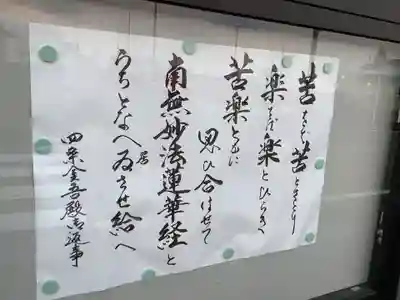 苦をば苦とさとり
楽をば楽とひらき
苦楽ともに
思ひ合せて
南無妙法蓮華経と
うちとなへ居させ給へ
四条金吾殿御返事